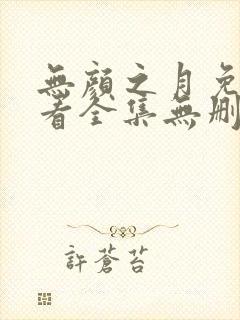 無顏之月免
看全集無刪
許蒼苔